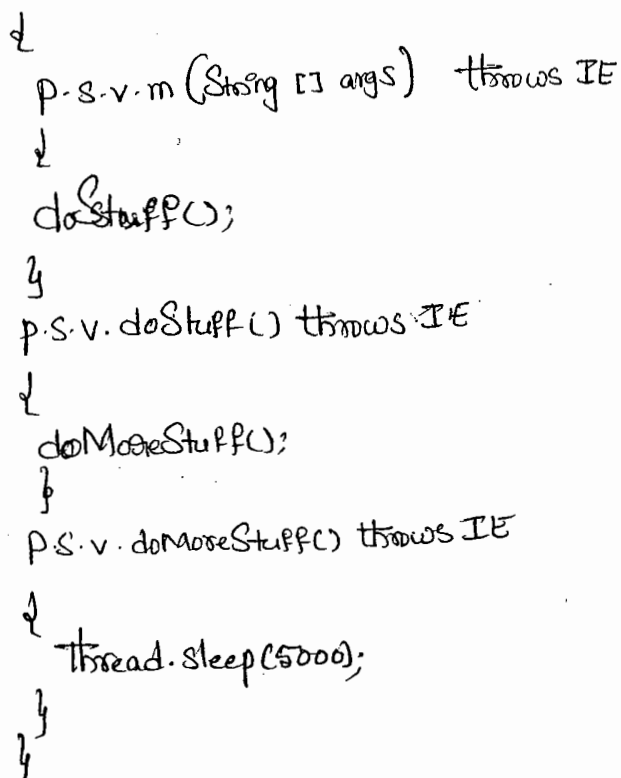 {
p.s.v.m (String [] args) throws IE
{
doStuff();
}
p.s.v. doStuff() throws IE
{
doMoreStuff();
}
p.s.v. doMoreStuff() throws IE
{
Thread.sleep(5000);
}
}